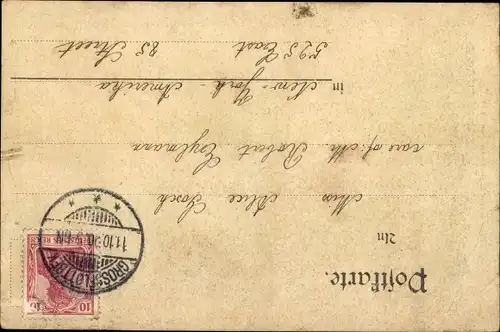 Postkarte.
An
Miss Alice Posch
care of. Mr. Robert Englmann
in New-York - Amerika
525 East 85 Street
GROSS-FLOTTBEK
11.10.
10